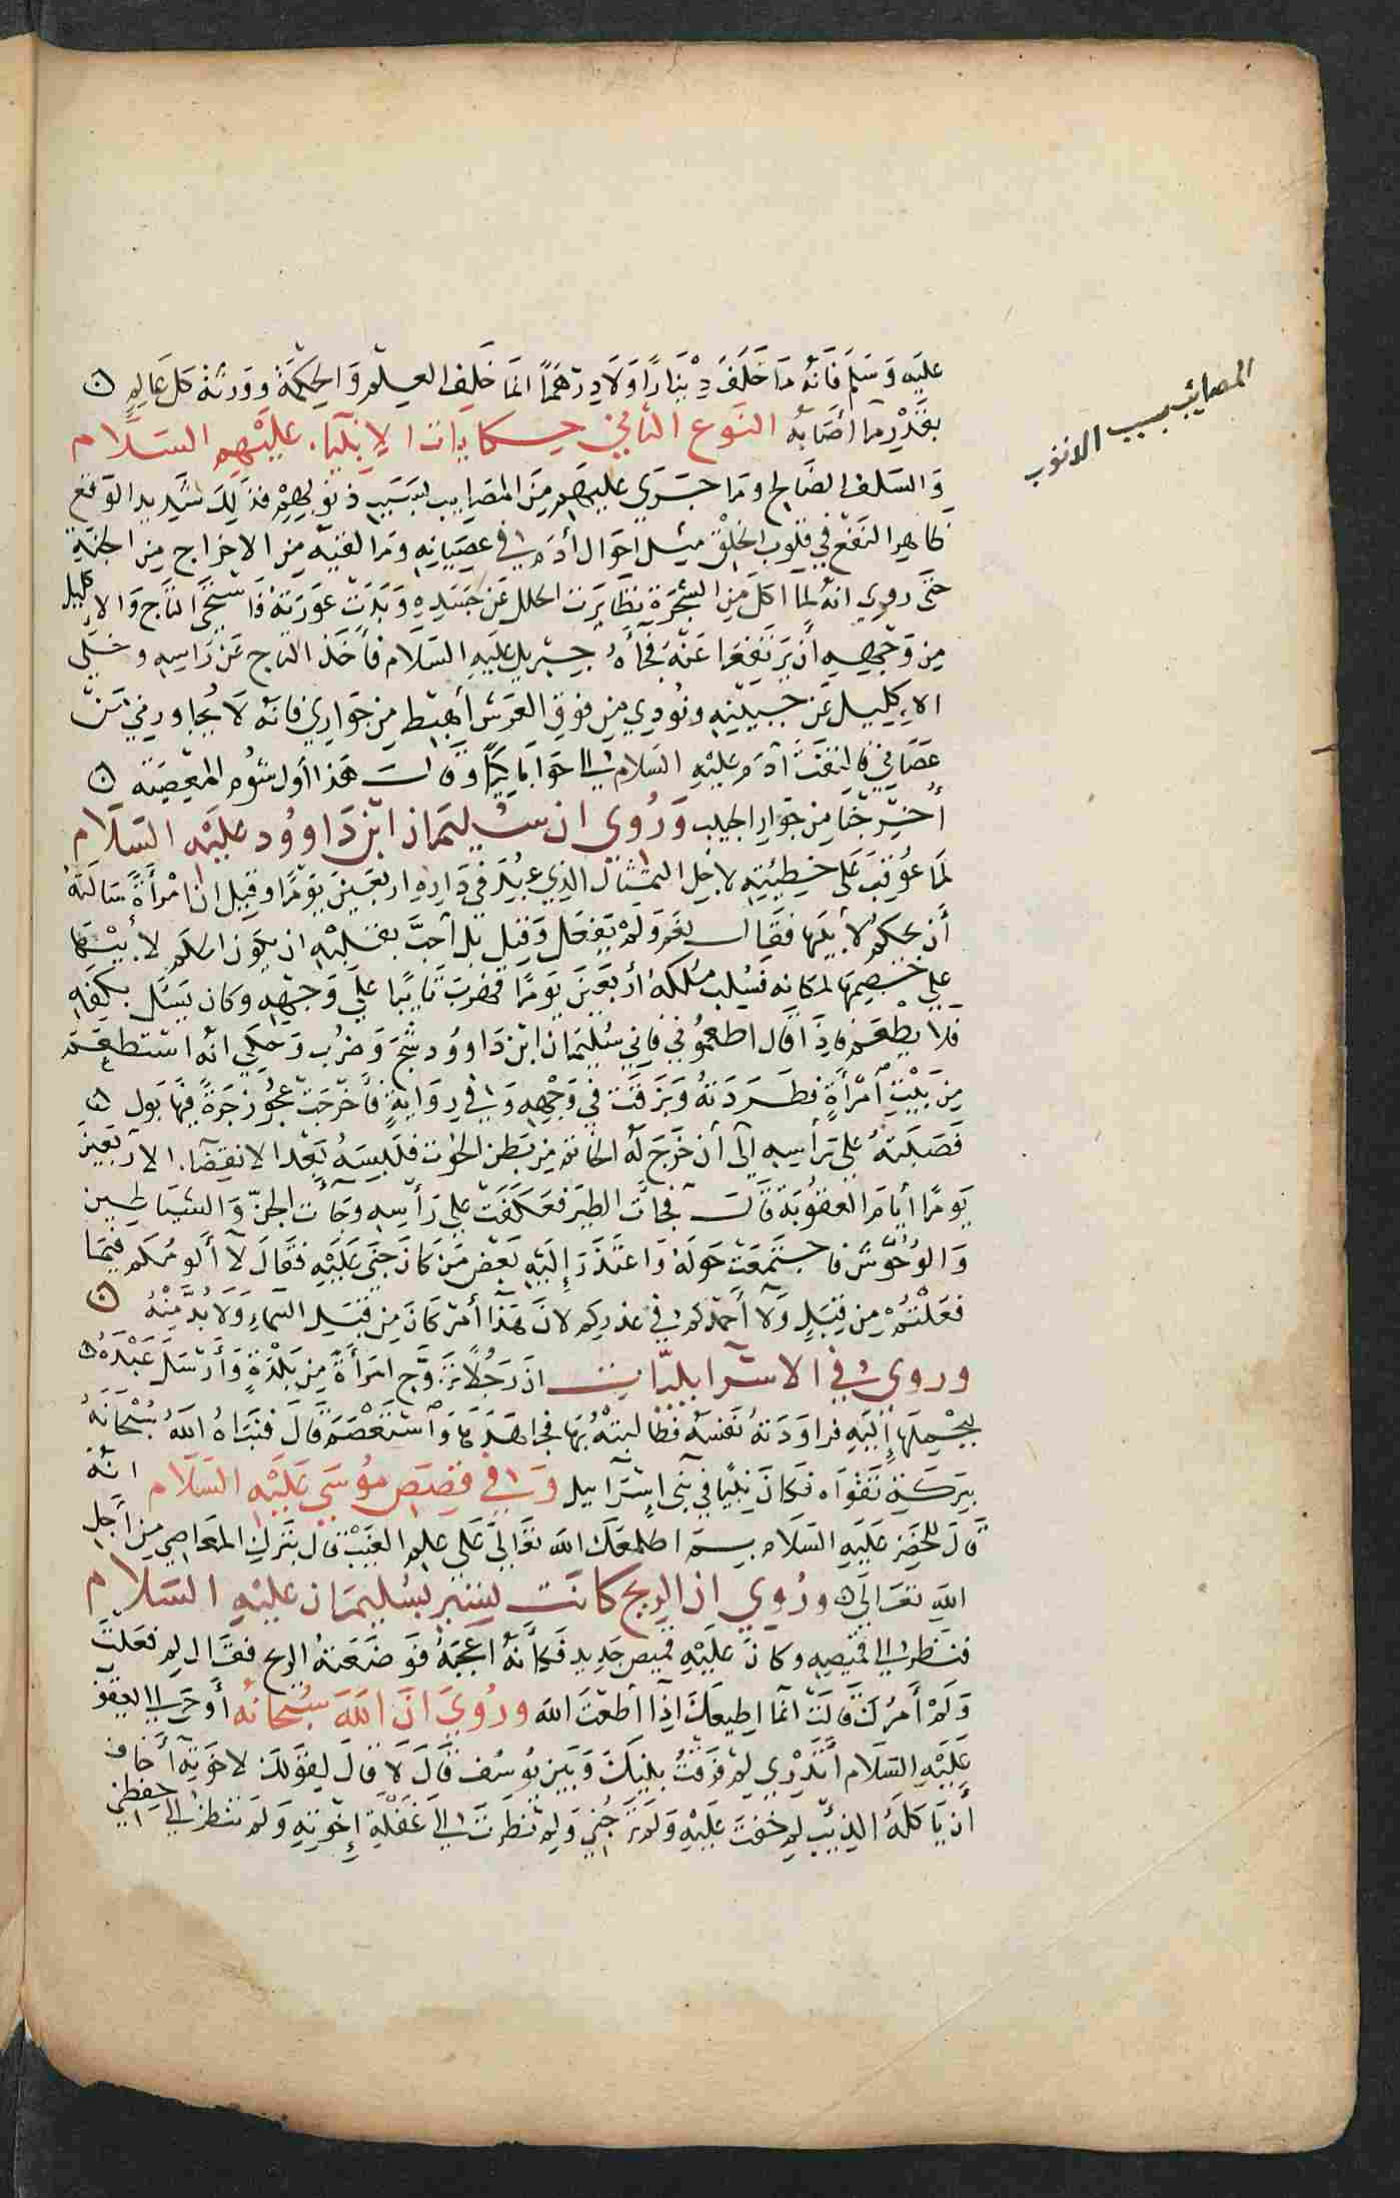 المصايب بسبب الذنوب
عليه وَسَلم فَانهُ مَا خَلَفَ دِيْنَارًا وَلَا دِرْهَمًا انما خَلف العِلم وَالحِكمَةَ وورثهُ كل عَالِمٍ
بقَدْرِ مَا أصَابهُ النَوع الثانى حِكَايات الانبيَآء عَليْهم السَلَام
وَالسَلف الصَالح ومَا جَرَي عليهم مِنَ المصَايب بسَبَبِ ذنوبهِمْ فذلك شَديد الوَقع
ظاهر النَفع فِي قلوب الخَلْق مثل احوَال أدَم فى عصيَانِهِ ومَا لقيهُ مِنَ الاخراج مِنَ الجنةِ
حَتى روي انهُ لمَا اكل مِنَ الشجَرَة تطَايَرت الحلل عَن جَسَدِهِ وَبَدَت عَورَتهُ فاستحَى التاج وَالاكليل
مِن وَجهِهِ أَن يَرتفعَا عَنهُ فجأهُ جبْرِيل عليهِ السَلَام فأخَذ التاج عَن رَاسِهِ وخَلى
الإكليل عَن جَبينِهِ ونُودي مِن فَوق العَرش أهبط مِن جوَارِي فانهُ لَا يُجاورني مَنْ
عَصَاني فَالتفتَ آدَم عليْهِ السَلام الى حَوَا بَاكيًا وَقال هَذا أول شؤم المعْصِيَة
أُخْرِجْنَا مِن جوَارِ الحبيب وَرُوي ان سُليمَان ابْن دَاووُد عليْه السَلَام
لمَا عُوقِبَ عَلى خطِيْئتِهِ لاجْل التمثَال الذي عُبِدَ فى دَارِهِ اربَعينَ يَوْمًا وقيل ان امْرأةً سَالتهُ
أن يحكم لأبيْهَا فقال نعَم وَلَمْ يَفعَل وَقيل بَل أَحبَّ بقَلبهِ ان يكون الحكم لأبيْهَا
علي خصمِهَا لمكانه فسُلب مُلكهُ أرْبَعينَ يَومًا فهرب تَايهًا علي وَجهِهِ وكان يَسئل بكفه
فلا يطعَم فاذَا قال اطعمُوني فاني سُليمان ابن دَاووُد شُجَّ وَضرب وَحكي انهُ استطعَمَ
مِن بَيْتِ أمْرأةٍ فطَرَدَتهُ وَبَزَقَت فِي وَجْهِهِ وَفى رِوَايةٍ فأخرَجَت عجُوز جَرَةً فيهَا بَول
فَصَبتهُ عَلى رَأسِهِ إلَى أن خَرَجَ لهُ الخاتم مِن بَطن الحوت فلَبِسَهُ بَعْد الانقضآء الأربَعِيْنَ
يَومًا أيامَ العُقوُبَة قَال فجائت الطير فعَكَفَت علي رَأسِهِ وجَآت الجِنّ وَالشيَاطِين
وَالوُحُوْش فَاجتمَعَتْ حَولهُ وَاعتذَرَ إليْهِ بَعْض مَن كَانَ جَنى عَلَيْهِ فقَالَ لآ ألومُكم فيمَا
فعَلْتُمْ مِن قَبْل وَلا أحمدكم في عذركم لانَ هَذا أمْر كَانَ مِن قِبَل السمَاءِ وَلَا بُدَّ مِنْهُ
وروي فى الاسْرَايليّات انَ رَجُلاً تزَوَّج امْرَأَةً مِنْ بَلْدَةٍ وَأرْسَلَ عَبْدَهُ
ليحْمِلهَا إليهِ فرَاوَدَتهُ نَفسَهُ فطَالبتْهُ بهَا فجَاهَدَهَا وَاسْتعْصَمَ قَالَ فنبَّاهُ اللّه سُبْحَانَهُ
ببركَةِ تَقوَاه فكانَ نبيًا فِي بَنى اسْرَآئيل وَفى قِصَصِ مُوسَى عَليْهِ السَلام انهُ
قَالَ للخضِر عَليه السَلام بِمَ اطلعَك الله تَعَالى عَلى علم الغَيْب قال بتَرْكِ المعَاصِي مِن أجْلِ
اللهِ تعَالَى وروُي ان الريح كانت تسير بسُليمَان عليْهِ السَلام
فنَظر الى قميصِهِ وكانَ عليْهِ قميص جَديد فكأنهُ اعجَبهُ فوَضَعَتهُ الريح فقال لِمَ فعَلت
وَلَمْ أَمُرْكِ قَالتْ انما اطِيعك اذا اطعْتَ الله وروُي انَّ اللّهَ سُبحَانهُ أوحَى الي يعقوب
عَليْهِ السَلام أتدْرِي لِمَ فَرقتُ بينَكَ وَبَين يُوسُف قَالَ لَا قالَ لقولك لاخوَتِهِ أخاف
أن يَاكلهُ الذئب لِمَ خفتَ عَليْهِ وَلَمْ تَرجُني وَلِمَ نظَرتَ الي غفْلَةِ إخْوَتِهِ وَلَم تنظر الى حفظي